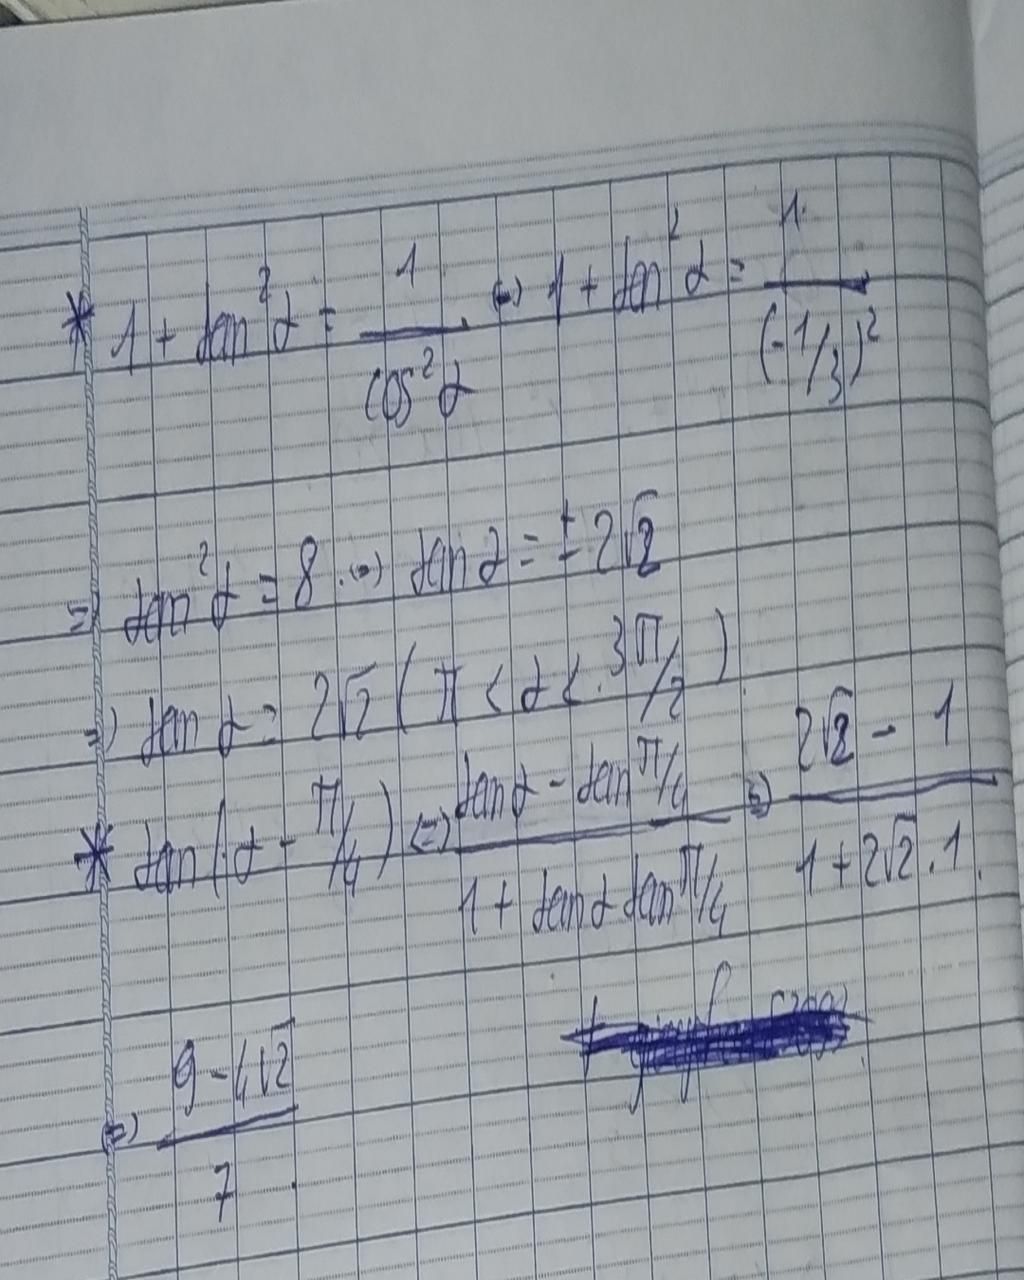 * 1 + tan²α = 1/cos²α (=) 1 + tan²α = 1/(-1/3)²
=) tan²α = 8 (=) tan α = ± 2√2
=) tan α = 2√2 ( π < α < 3π/2 )
* tan(α - π/4) (=) (tanα - tan π/4)/(1 + tanα tan π/4) (=) (2√2 - 1)/(1 + 2√2 . 1)
(=) (9 - 4√2)/7